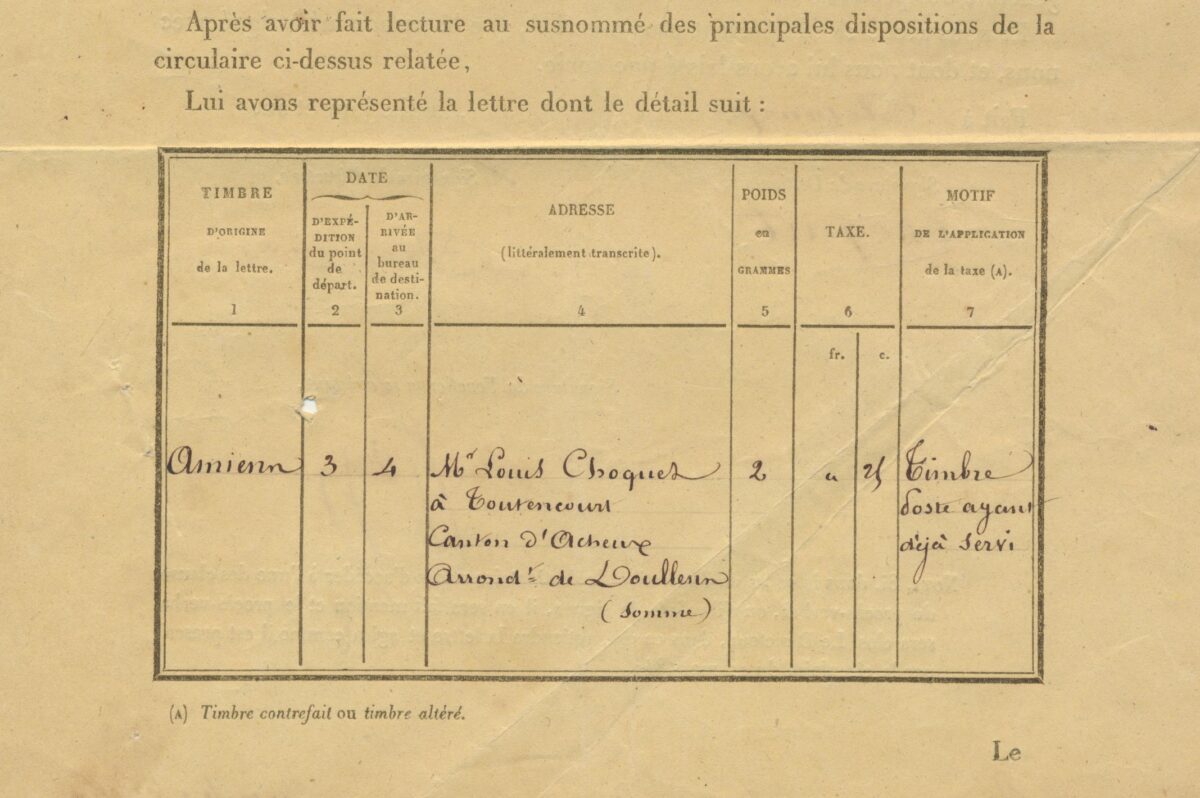 Après avoir fait lecture au susnommé des principales dispositions de la
circulaire ci-dessus relatée,
Lui avons représenté la lettre dont le détail suit :
TIMBRE
D'ORIGINE
de la lettre.
1
DATE
D'EXPÉ-
DITION
du point
de
départ.
2
D'AR-
RIVÉE
au
bureau
de desti-
nation.
3
ADRESSE
(littéralement transcrite).
4
POIDS
en
GRAMMES
5
TAXE.
6
fr. c.
MOTIF
DE L'APPLICATION
de la taxe (A).
7
Amiens
3
4
Mr Louis Choquet
à Toutencourt
Canton d'Acheux
Arrondt de Doullens
(Somme)
2
" 25
Timbre
Poste ayant
déjà servi
(A) Timbre contrefait ou timbre altéré.
Le